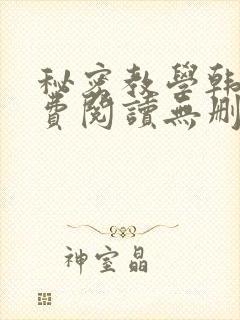 秘密教學韓
費閱讀無刪
神室晶